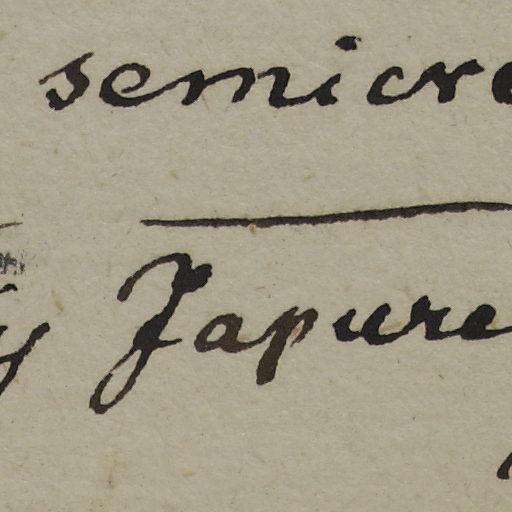 semicre
y Japure